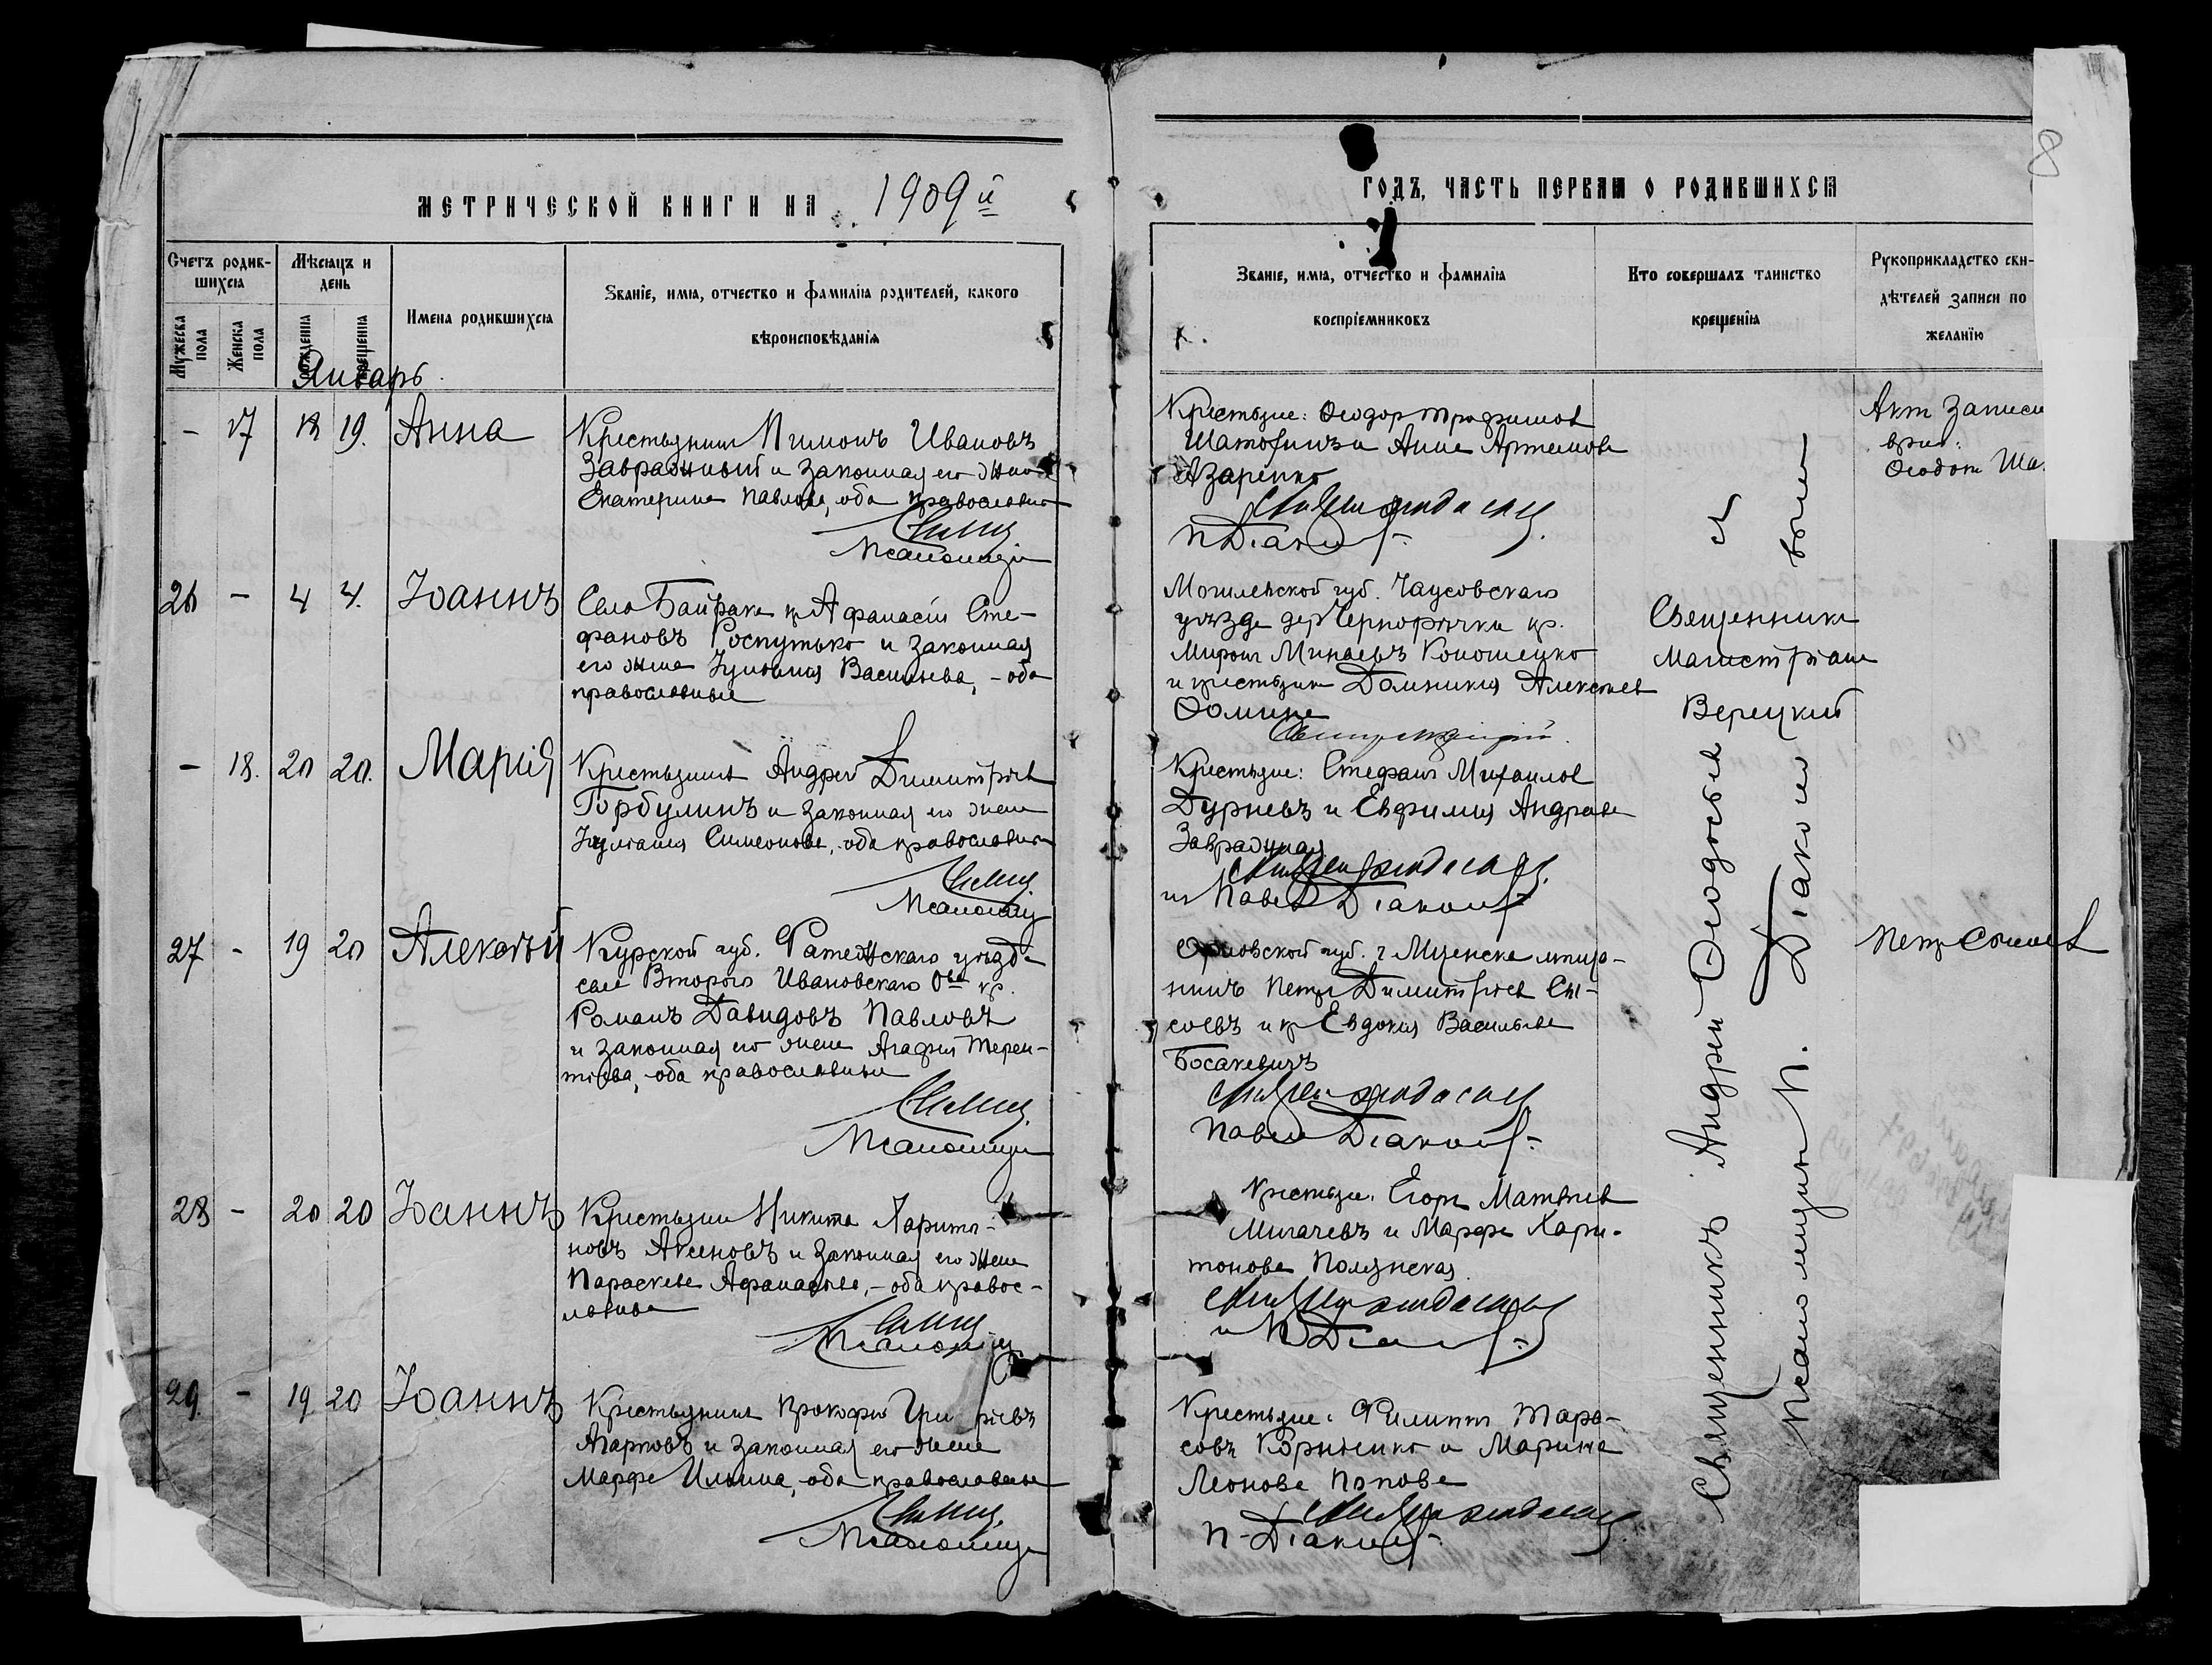 МЕТРИЧЕСКОЙ КНИГИ НА 1909й
ГОДЪ, ЧАСТЬ ПЕРВАЯ О РОДИВШИХСЯ
8
Счетъ родив-
шихся
Мужеска пола
Женска пола
Мѣсяцъ и
день
рожденія
крещенія
Имена родившихся
Званіе, имя, отчество и фамилія родителей, какого
вѣроисповѣданія
Званіе, имя, отчество и фамилія
воспріемниковъ
Кто совершалъ таинство
крещенія
Рукоприкладство сви-
дѣтелей записи по
желанію
Январь.
- 17 18 19. Анна
Крестьянинъ Пимонъ Ивановъ
Завражный и законная его жена
Екатерина Павлова, оба православн
Псаломщ
Крестьяне: Ѳеодор Трофимов
и Анна Артемова
Азаренко
П Діакон
Акт записи
Ѳеодот Ша
26 - 4 4. Іоаннъ
Села Байрака кр Афанасій Сте-
фановъ Роспутько и законная
его жена Іуліанія Васильева, - оба
православные
Могилевской губ. Чаусовскаго
уѣзда дер Чернорѣчки кр.
Мирон Минаевъ Коношенко
и крестьянк Домникія Алексѣев
Ѳомина
Священникъ
Магистріанъ
Верецкий
- 18. 20 20. Марія
Крестьянинъ Андрей Димитріев
Горбулинъ и законная его жена
Іуліанія Симеонова, оба православн
Псаломщ
Крестьяне: Стефанъ Михаилов
Дурневъ и Евфимія Андреева
Завражная
и Павел Діакон
27 - 19 20 Алексѣй
Курской губ. Фатежскаго уѣзда
села Второго Ивановскаго Оба кр.
Романъ Давидовъ Павловъ
и законная его жена Агафія Терен-
тьева, оба православные
Псаломщик
Орловской губ. г Мценска мѣща-
нинъ Петр Димитріев Сы-
соевъ и кр Евдокія Васильева
Босакевичъ
Павел Діакон
Петр Сысоев
28 - 20 20 Іоаннъ
Крестьянин Никита Харито-
новъ Аксеновъ и законная его жена
Параскева Афанасьева, - оба правос-
лавные
Псаломщ
Крестьяне: Егор Матвѣев
Мигачевъ и Марфа Хари-
тонова Полянская
и П Діакон
29. - 19 20 Іоаннъ
Крестьянинъ Прокофій Григорьевъ
Агарковъ и законная его жена
Марфа Ильина, оба православные
Псаломщик
Крестьяне: Филиппъ Тара-
совъ Корніенко и Марина
Леонова Попова
П - Діакон
Священникъ Андрей Ѳеодосьев
Псаломщик П. Діаконов